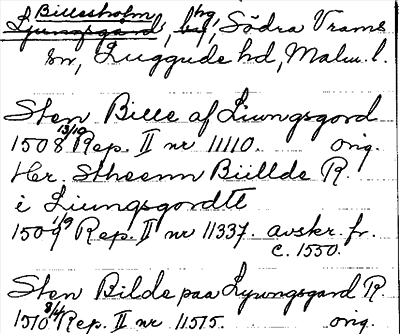 Billesholm
Ljungsgård, hg, Södra Vrams
sn, Luggude hd, Malm. l.
Sten Bille af Liungsgord
1508 13/10 Rep. II nr 11110. orig.
Hr. Stheenn Biillde R.
i Liungsgordtt
1509 1/9 Rep. II nr 11337. avskr. fr.
c. 1550.
Sten Bilde paa Lywngsgard R.
1510 8/4 Rep. II nr 11515. orig.